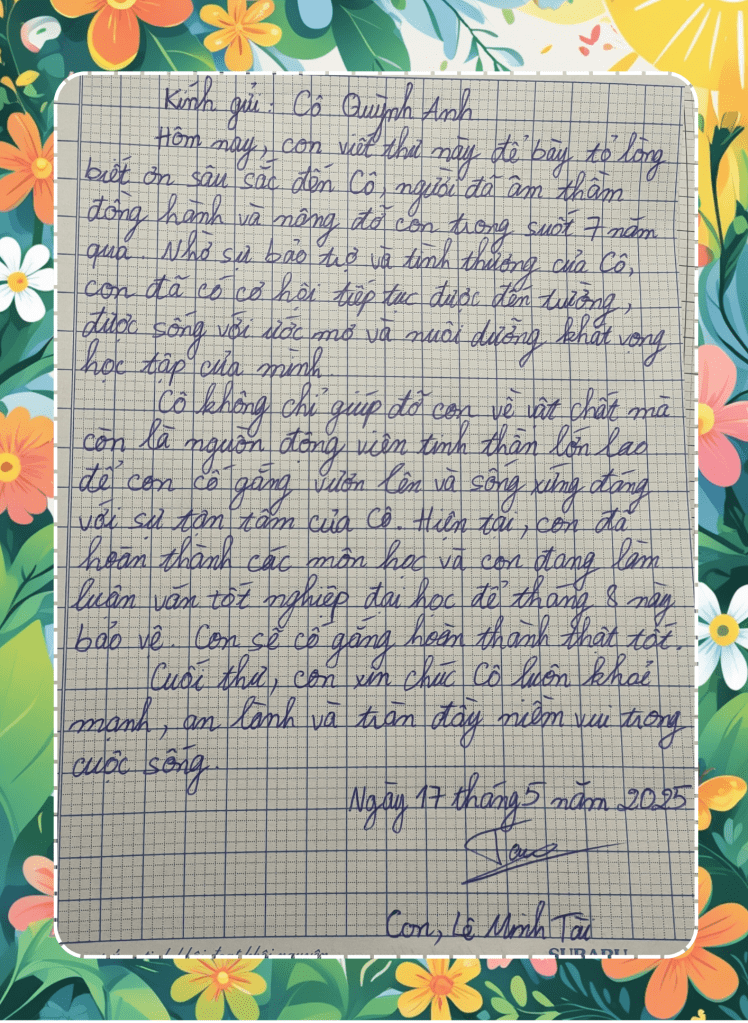 Kính gửi: Cô Quỳnh Anh
Hôm nay, con viết thư này để bày tỏ lòng
biết ơn sâu sắc đến Cô, người đã âm thầm
đồng hành và nâng đỡ con trong suốt 7 năm
qua. Nhờ sự bảo trợ và tình thương của Cô,
con đã có cơ hội tiếp tục được đến trường,
được sống với ước mơ và nuôi dưỡng khát vọng
học tập của mình.
Cô không chỉ giúp đỡ con về vật chất mà
còn là nguồn động viên tinh thần lớn lao
để con cố gắng vươn lên và sống xứng đáng
với sự tận tâm của Cô. Hiện tại, con đã
hoàn thành các môn học và con đang làm
luận văn tốt nghiệp đại học để tháng 8 này
bảo vệ. Con sẽ cố gắng hoàn thành thật tốt.
Cuối thư, con xin chúc Cô luôn khoẻ
mạnh, an lành và tràn đầy niềm vui trong
cuộc sống.
Ngày 17 tháng 5 năm 2025
Con, Lê Minh Tài
SUBARU